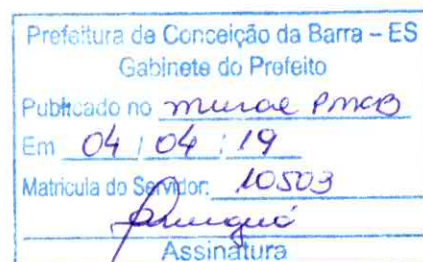 Prefeitura de Conceição da Barra – ES
Gabinete do Prefeito
Publicado no mural PMCB
Em 04 / 04 / 19
Matricula do Servidor: 10503
Assinatura